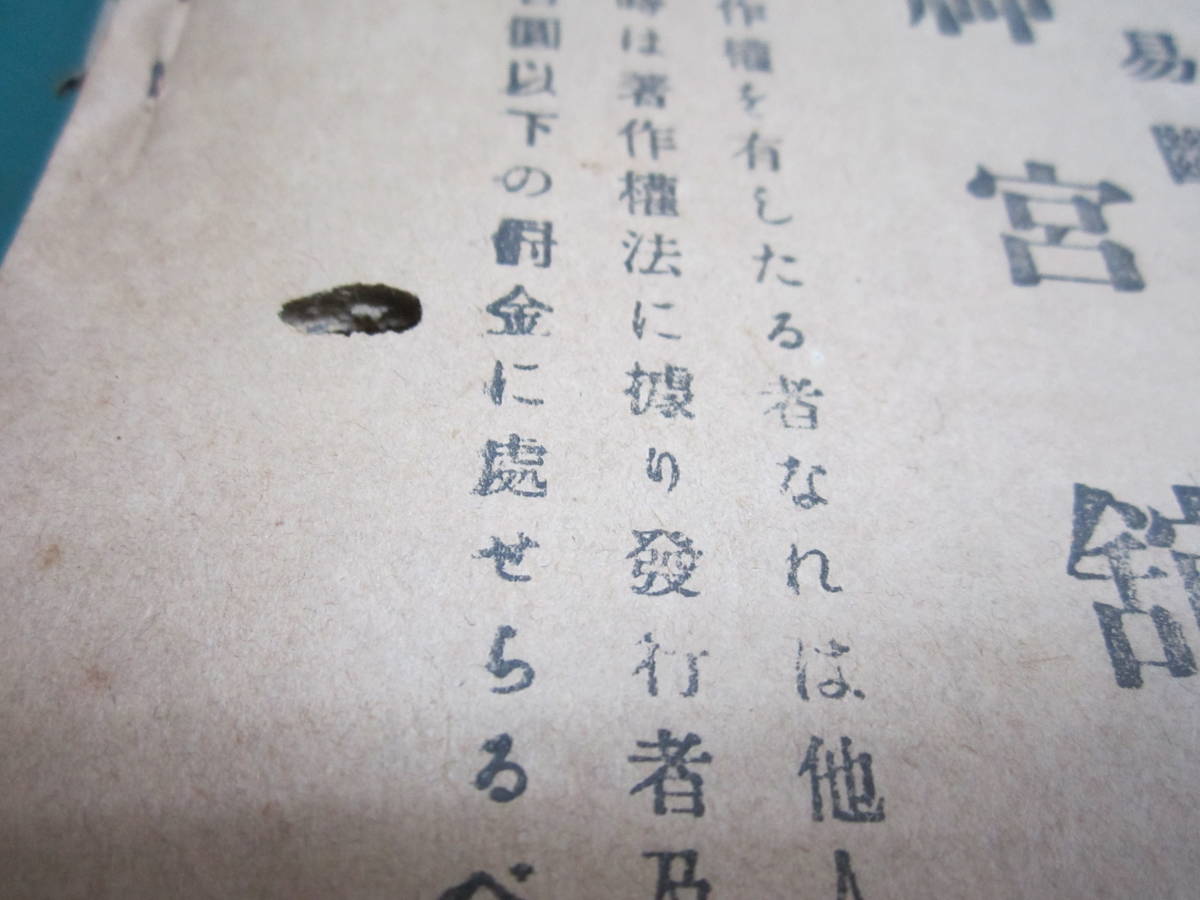 易
宮
館
作權を有したる者なれは他人
時は著作權法に據り發行者乃
圓以下の罰金に處せらるべ